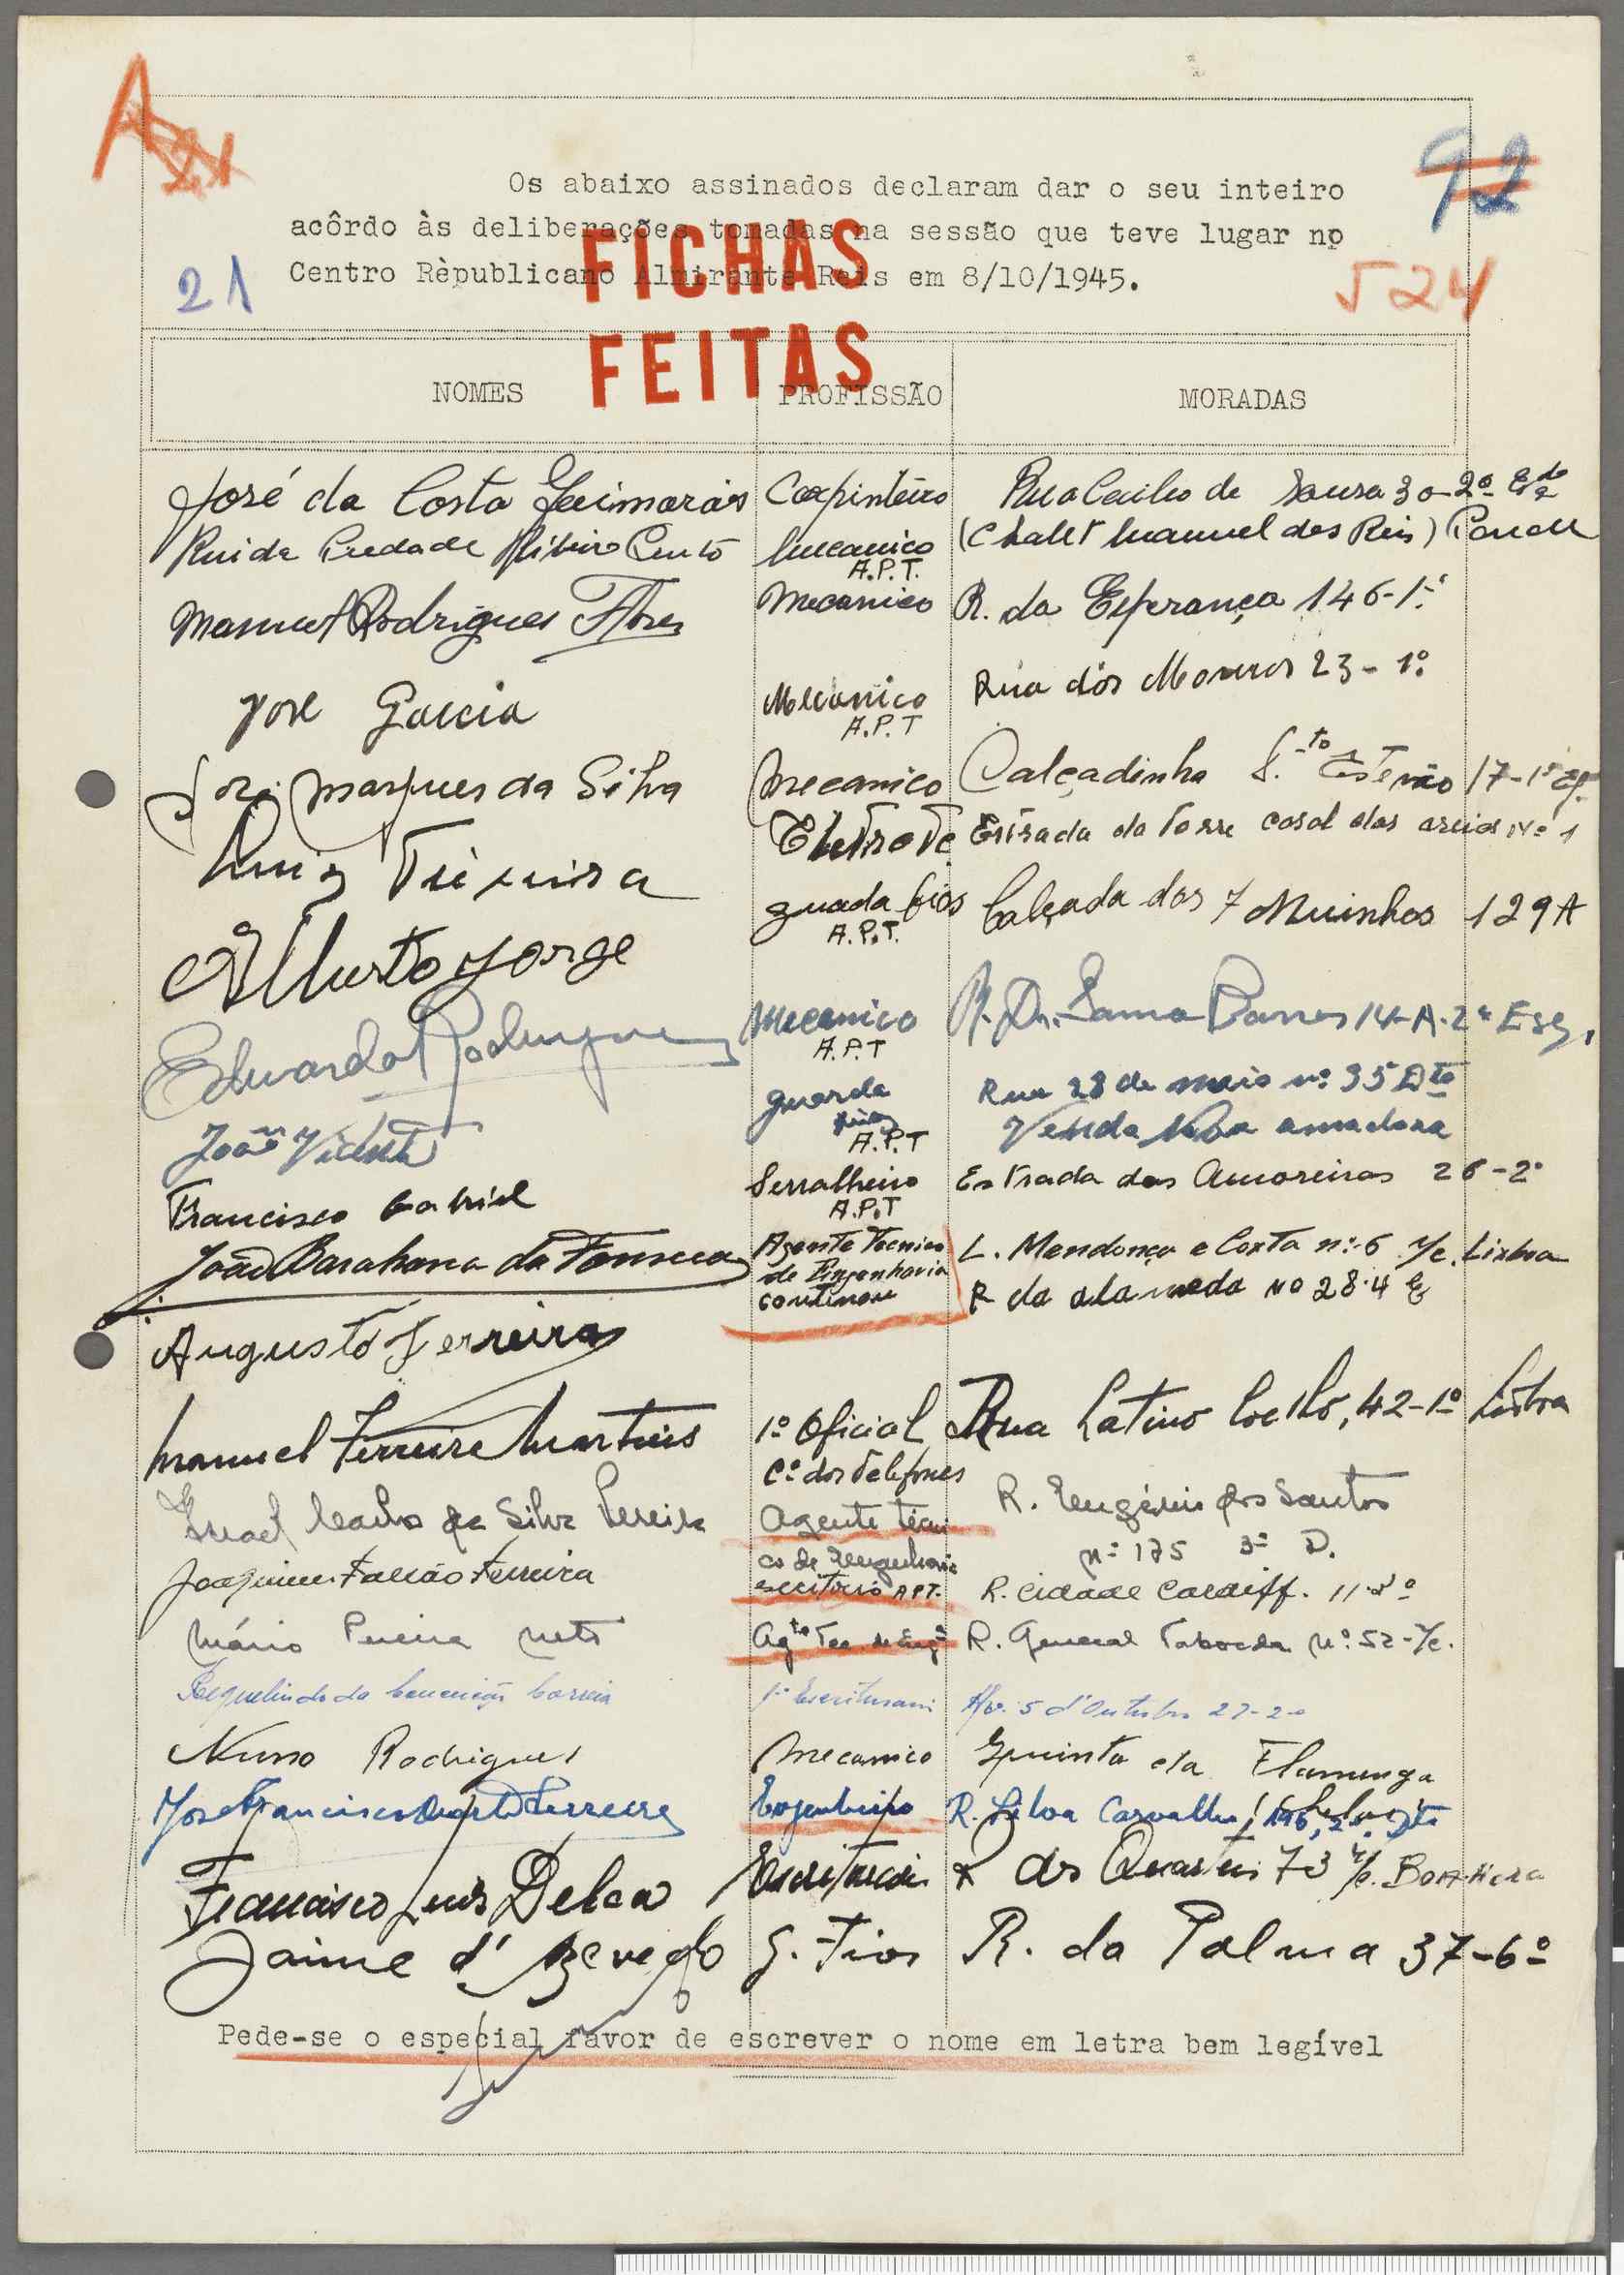 92
21
Os abaixo assinados declaram dar o seu inteiro
acôrdo às deliberações tomadas na sessão que teve lugar no
Centro Rèpublicano Almirante Reis em 8/10/1945.
524
FICHAS
FEITAS
NOMES PROFISSÃO MORADAS
José da Costa Guimarães Carpinteiro Rua Cecilio de Sousa 30-2º
Rui da Piedade Ribeiro Couto Mecanico A.P.T. (Chalet Manuel dos Reis)
Manuel Rodrigues Flores Mecanico R. da Esperança 146-1º
José Garcia Mecanico A.P.T Rua dos Mouros 23-1º
José Marques da Silva Mecanico Calçadinha S.to Estevão 17-1º Eq.
Luiz Teixeira Estrada da Torre casal das areias Nº 1
Alberto Jorge guada fios A.P.T. Calçada dos 7 Muinhos 129A
Eduardo Rodrigues Mecanico A.P.T R. Dr. Gama Barros 14-A-2º Esq.
João Vicente guarda fios A.P.T Rua 28 de maio nº 35 Dto
Venda Nova amadora
Francisco Gabriel Serralheiro A.P.T Estrada das Amoreiras 26-2º
João Barahona da Fonseca Agente Tecnico de Engenharia L. Mendonça e Costa nº 6 r/c. Lisboa
Augusto Ferreira continuo R da alameda No 28-4 E
Manuel Ferreira Martins 1º Oficial Rua Latino Coelho, 42-1º Lisboa
Cª dos Telefones
da Silva Pereira Agente técnico de Engenharia R. Eugénio dos Santos
nº 175 3º D.
Joaquim Falcão Ferreira escritorio APT. R. Cidade Cardiff. 11
Mário Pereira Neto Agte Tec. de Engª R. General Taborda Nº 52-r/c.
da Conceição Correia 1º Escriturario Av. 5 d'Outubro 27-2º
Nuno Rodrigues Mecanico Quinta da Flamenga
José Francisco Duarte Ferreira Engenheiro R. Silva Carvalho, 146, 2º Dto
Francisco Luis Escriturario R dos Quarteis 73 r/c.
Jaime d'Azevedo G. Fios R. da Palma 37-6º
Pede-se o especial favor de escrever o nome em letra bem legível